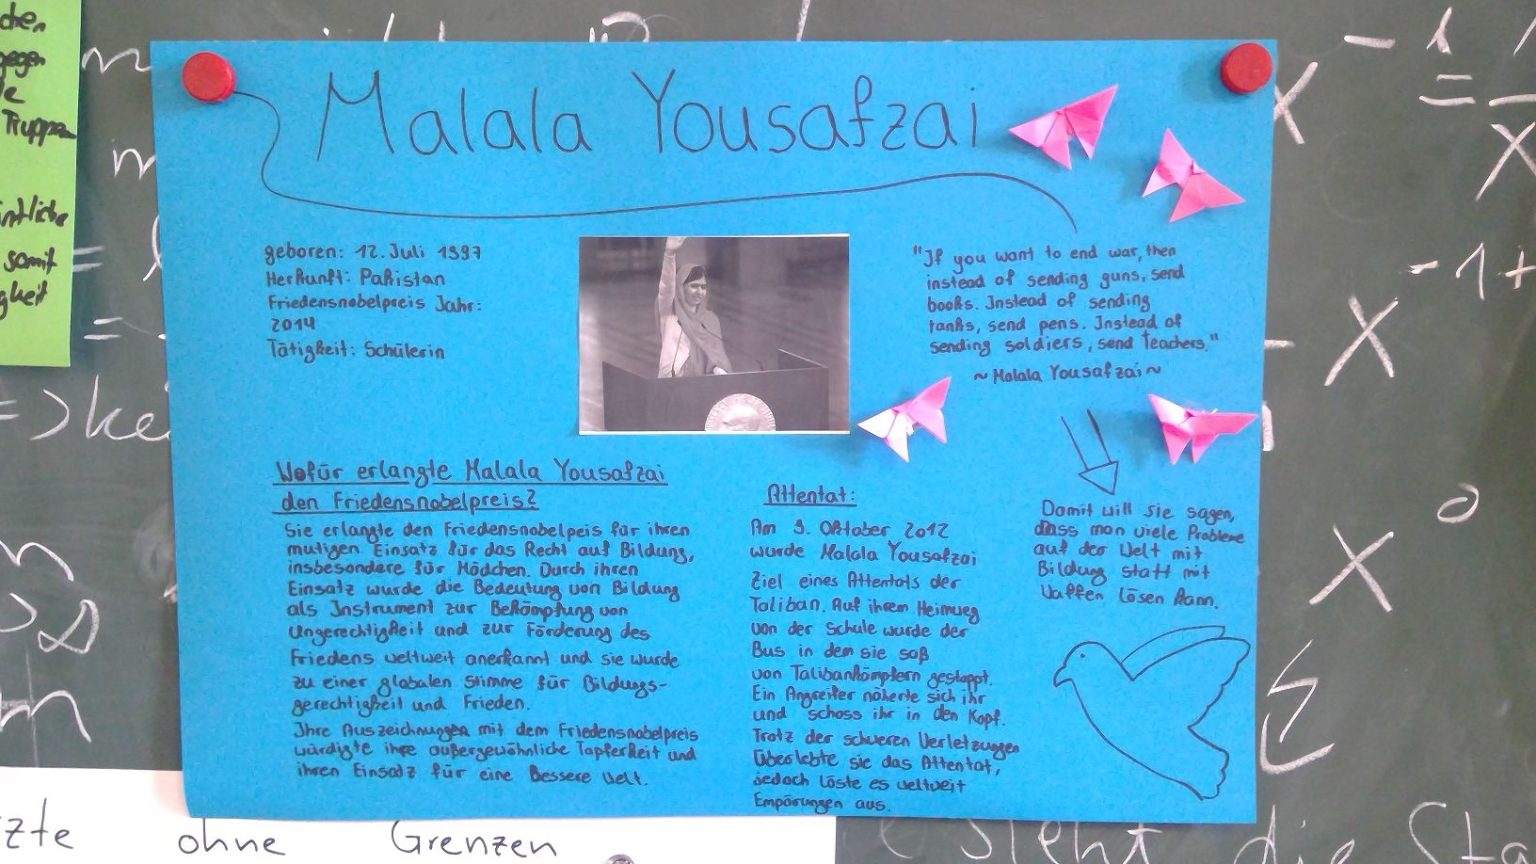 Malala Yousafzai
geboren: 12. Juli 1997
Herkunft: Pakistan
Friedensnobelpreis Jahr:
2014
Tätigkeit: Schülerin
"If you want to end war, then
instead of sending guns, send
books. Instead of sending
tanks, send pens. Instead of
sending soldiers, send Teachers."
~ Malala Yousafzai ~
Wofür erlangte Malala Yousafzai
den Friedensnobelpreis?
Sie erlangte den Friedensnobelpeis für ihren
mutigen Einsatz für das Recht auf Bildung,
insbesondere für Mädchen. Durch ihren
Einsatz wurde die Bedeutung von Bildung
als Instrument zur Bekämpfung von
Ungerechtigkeit und zur Förderung des
Friedens weltweit anerkannt und sie wurde
zu einer globalen Stimme für Bildungs-
gerechtigkeit und Frieden.
Ihre Auszeichnungen mit dem Friedensnobelpreis
würdigte ihre außergewöhnliche Tapferkeit und
ihren Einsatz für eine Bessere Welt.
Attentat:
Am 9. Oktober 2012
wurde Malala Yousafzai
Ziel eines Attentats der
Taliban. Auf ihrem Heimweg
von der Schule wurde der
Bus in dem sie saß
von Talibankämpfern gestoppt.
Ein Angreifer näherte sich ihr
und schoss ihr in den Kopf.
Trotz der schweren Verletzungen
Überlebte sie das Attentat,
jedoch löste es weltweit
Empörungen aus.
Damit will sie sagen,
dass man viele Probleme
auf der Welt mit
Bildung statt mit
Waffen lösen kann.
gegen
Truppen
somit
= -
- 1 +
x
x °
x
=> kei
ohne Grenzen
steht die Sta